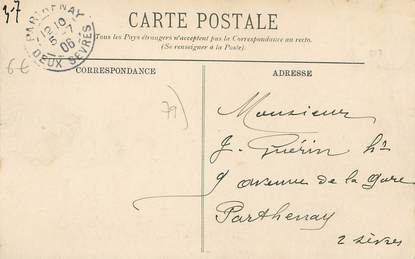 3-7
CARTE POSTALE
Tous les Pays étrangers n'acceptent pas la Correspondance au recto.
(Se renseigner à la Poste).
PARTHENAY
DEUX SÈVRES
6€
CORRESPONDANCE
ADRESSE
79)
Monsieur
J. Guérin
9 avenue de la Gare
Parthenay
2 Sèvres